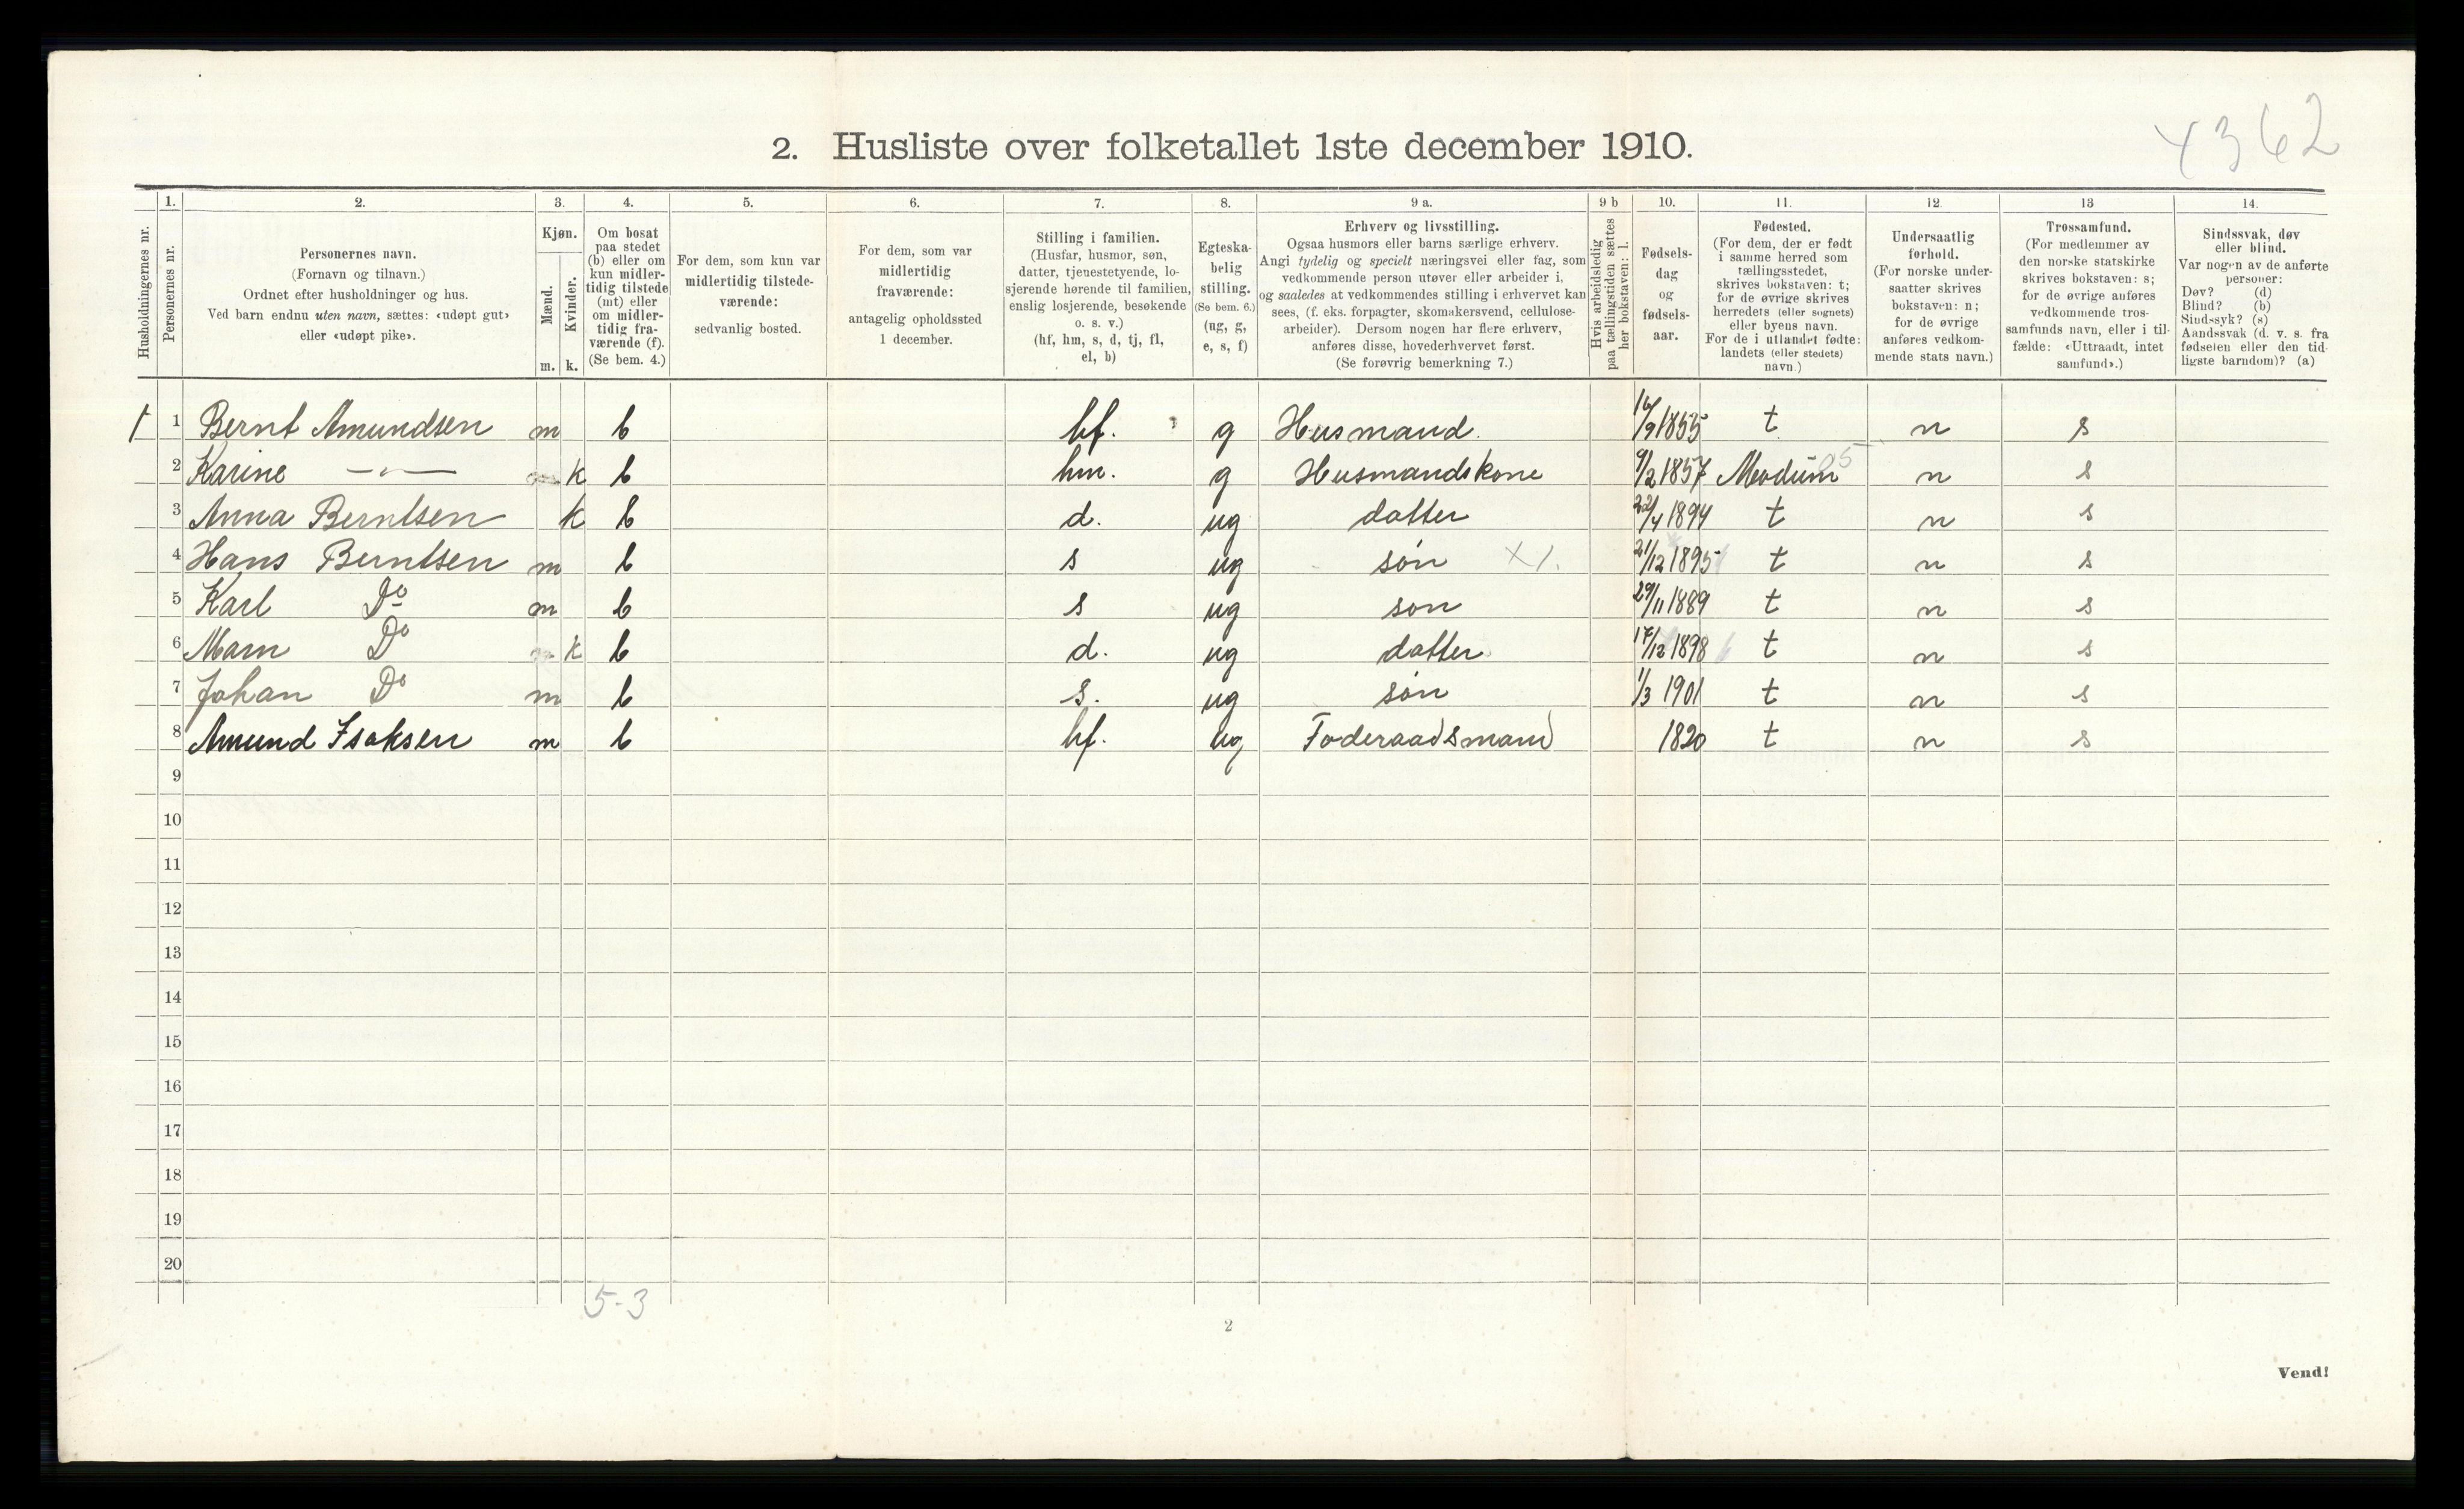 4362
2. Husliste over folketallet 1ste december 1910.
Husholdningernes nr.
1.
Personernes nr.
2.
Personernes navn.
(Fornavn og tilnavn.)
Ordnet efter husholdninger og hus.
Ved barn endnu uten navn, sættes: «udøpt gut»
eller «udøpt pike».
3.
Kjøn.
Mænd.
m.
Kvinder.
k.
4.
Om bosat
paa stedet
(b) eller om
kun midler-
tidig tilstede
(mt) eller
om midler-
tidig fra-
værende (f).
(Se bem. 4.)
5.
For dem, som kun var
midlertidig tilstede-
værende:
sedvanlig bosted.
6.
For dem, som var
midlertidig
fraværende:
antagelig opholdssted
1 december.
7.
Stilling i familien.
(Husfar, husmor, søn,
datter, tjenestetyende, lo-
sjerende hørende til familien,
enslig losjerende, besøkende
o. s. v.)
(hf, hm, s, d, tj, fl,
el, b)
8.
Egteska-
belig
stilling.
(Se bem. 6.)
(ug, g,
e, s, f)
9 a.
Erhverv og livsstilling.
Ogsaa husmors eller barns særlige erhverv.
Angi tydelig og specielt næringsvei eller fag, som
vedkommende person utøver eller arbeider i,
og saaledes at vedkommendes stilling i erhvervet kan
sees, (f. eks. forpagter, skomakersvend, cellulose-
arbeider). Dersom nogen har flere erhverv,
anføres disse, hovederhvervet først.
(Se forøvrig bemerkning 7.)
9 b
Hvis arbeidsledig
paa tællingstiden sættes
her bokstaven: l.
10.
Fødsels-
dag
og
fødsels-
aar.
11.
Fødested.
(For dem, der er født
i samme herred som
tællingsstedet,
skrives bokstaven: t;
for de øvrige skrives
herredets (eller sognets)
eller byens navn.
For de i utlandet fødte:
landets (eller stedets)
navn.)
12.
Undersaatlig
forhold.
(For norske under-
saatter skrives
bokstaven: n;
for de øvrige
anføres vedkom-
mende stats navn.)
13
Trossamfund.
(For medlemmer av
den norske statskirke
skrives bokstaven: s;
for de øvrige anføres
vedkommende tros-
samfunds navn, eller i til-
fælde: «Uttraadt, intet
samfund».)
14.
Sindssvak, døv
eller blind.
Var nogen av de anførte
personer:
Døv? (d)
Blind? (b)
Sindssyk? (s)
Aandssvak (d. v. s. fra
fødselen eller den tid-
ligste barndom)? (a)
1 1 Bernt Amundsen m b hf. g Husmand. 16/9 1855 t n s
2 Karine —"— k b hm. g Husmandskone 9/2 1857 Modum n s
3 Anna Berntsen k b d. ug datter 22/4 1894 t n s
4 Hans Berntsen m b s ug søn X1. 21/12 1895 t n s
5 Karl Do m b s ug son 29/11 1889 t n s
6 Marn Do k b d. ug datter 17/12 1898 t n s
7 Johan Do m b s. ug søn 1/3 1901 t n s
8 Amund Isaksen m b hf. ug Foderaadsmand 1820 t n s
9
10
11
12
13
14
15
16
17
18
19
20
5-3
2
Vend!